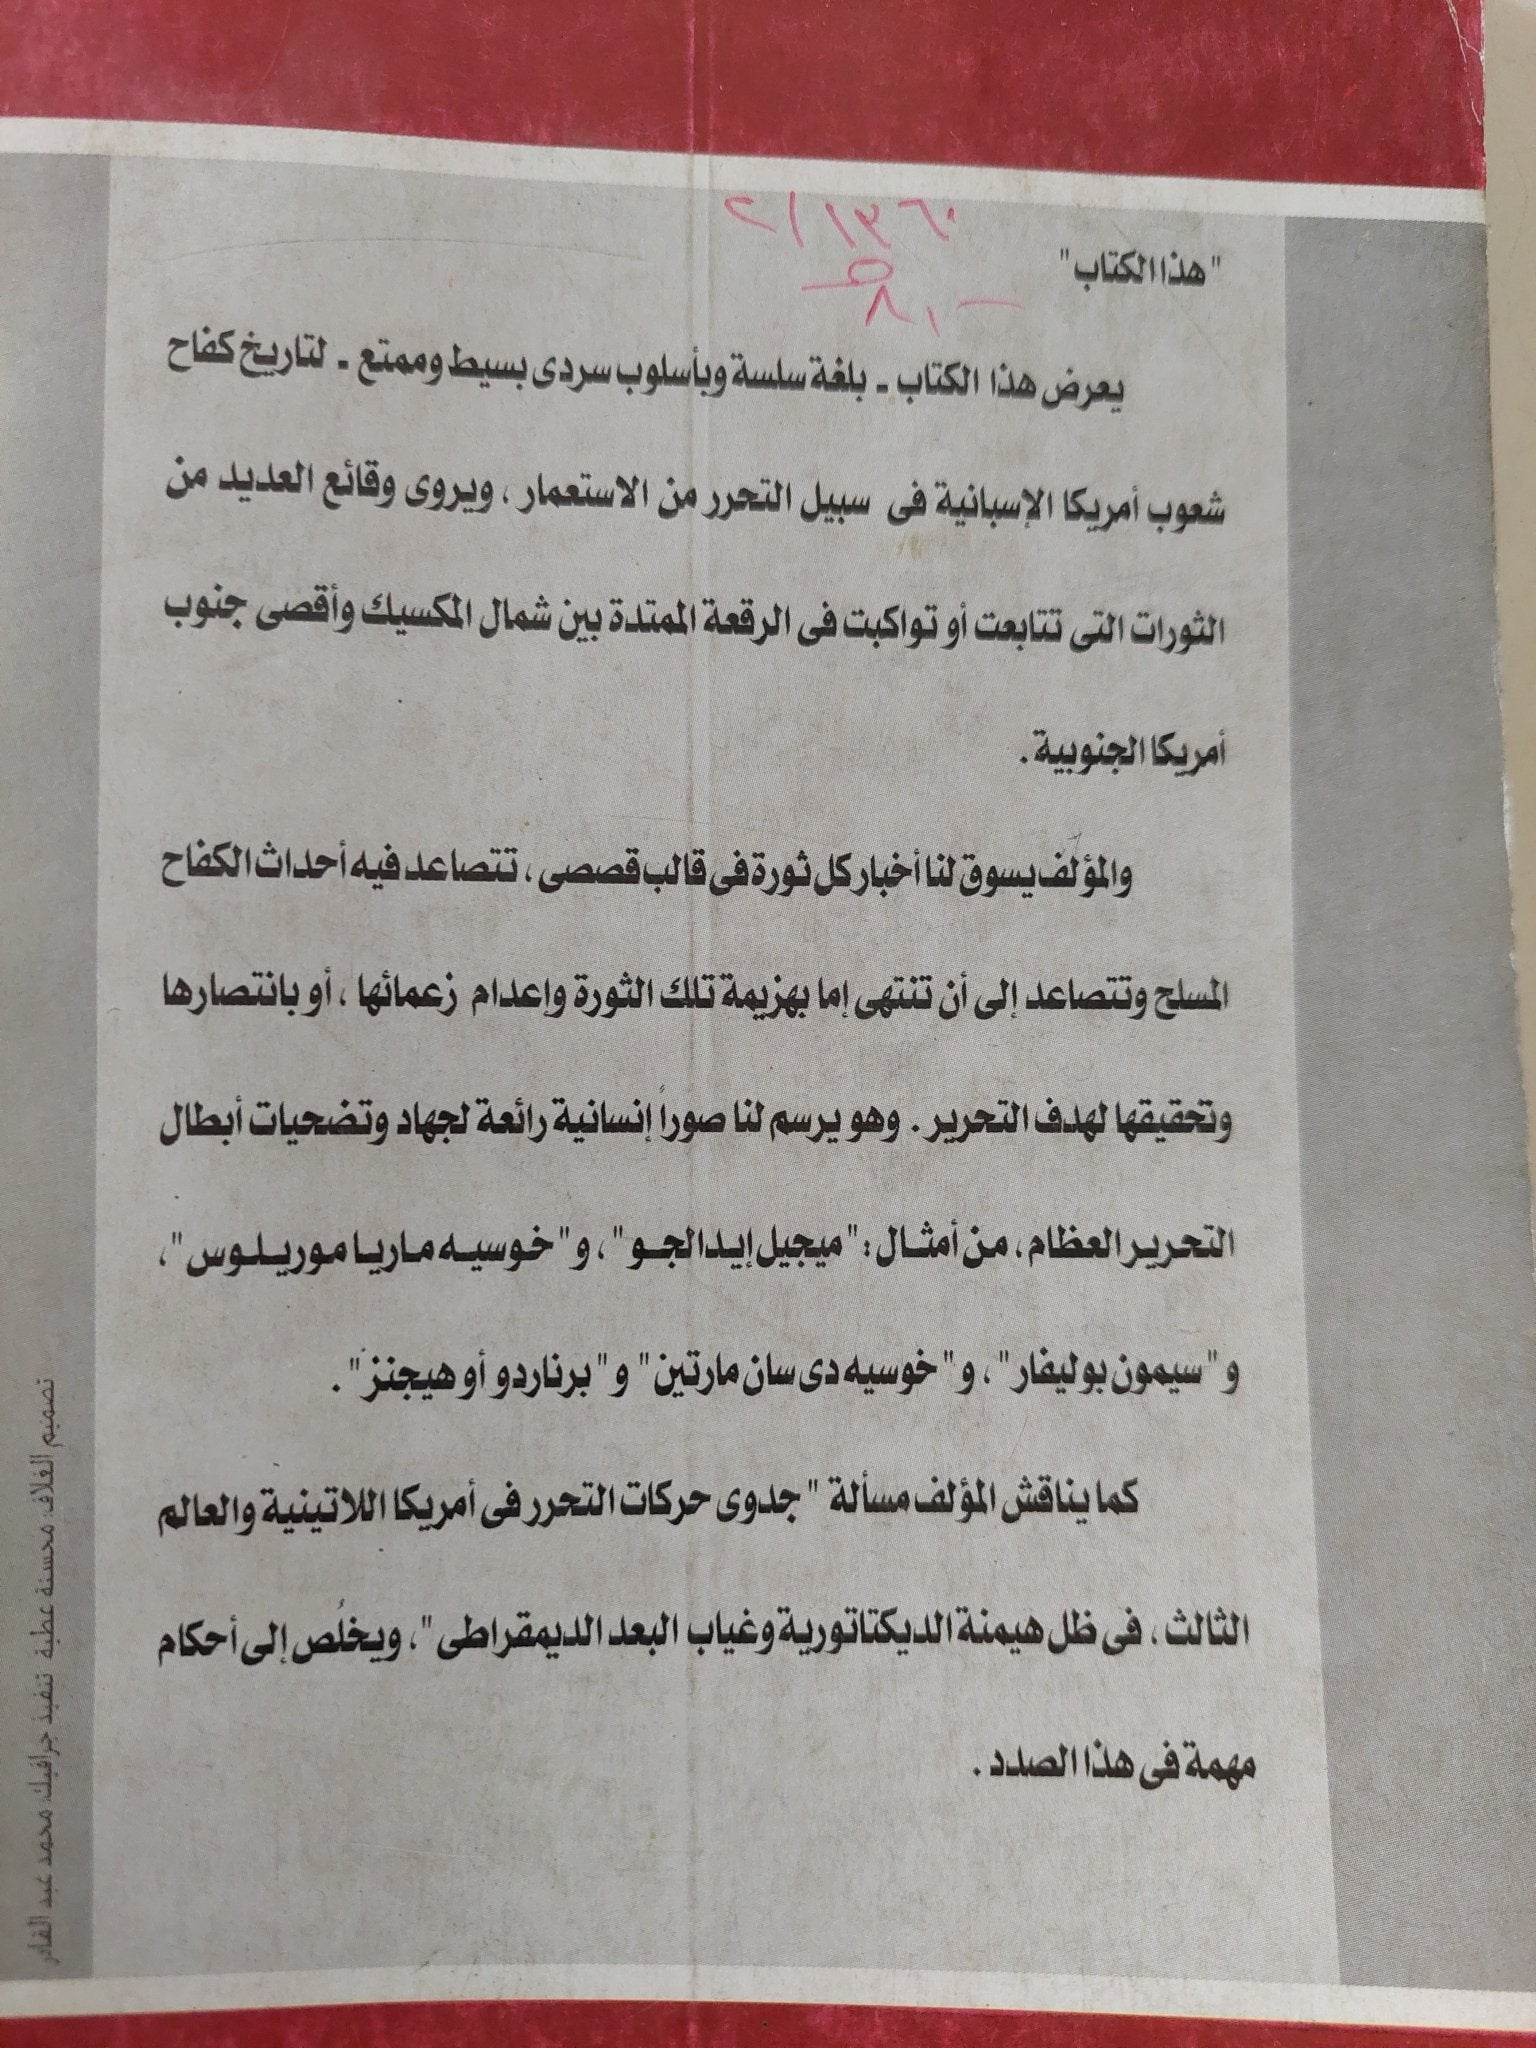 ٢/١٣٦٠
"هذا الكتاب"
يعرض هذا الكتاب ـ بلغة سلسة وبأسلوب سردى بسيط وممتع ـ لتاريخ كفاح
شعوب أمريكا الإسبانية فى سبيل التحرر من الاستعمار ، ويروى وقائع العديد من
الثورات التى تتابعت أو تواكبت فى الرقعة الممتدة بين شمال المكسيك وأقصى جنوب
أمريكا الجنوبية .
والمؤلف يسوق لنا أخبار كل ثورة فى قالب قصصى ، تتصاعد فيه أحداث الكفاح
المسلح وتتصاعد إلى أن تنتهى إما بهزيمة تلك الثورة وإعدام زعمائها ، أو بانتصارها
وتحقيقها لهدف التحرير . وهو يرسم لنا صوراً إنسانية رائعة لجهاد وتضحيات أبطال
التحرير العظام ، من أمثال : "ميجيل إيدالجو" ، و"خوسيه ماريا موريلوس" ،
و"سيمون بوليفار" ، و"خوسيه دى سان مارتين" و"برناردو أو هيجنز" .
كما يناقش المؤلف مسألة "جدوى حركات التحرر فى أمريكا اللاتينية والعالم
الثالث ، فى ظل هيمنة الديكتاتورية وغياب البعد الديمقراطى" ، ويخلُص إلى أحكام
مهمة فى هذا الصدد .
تصميم الغلاف: محسنة عطية تنفيذ جرافيك: محمد عبد القادر